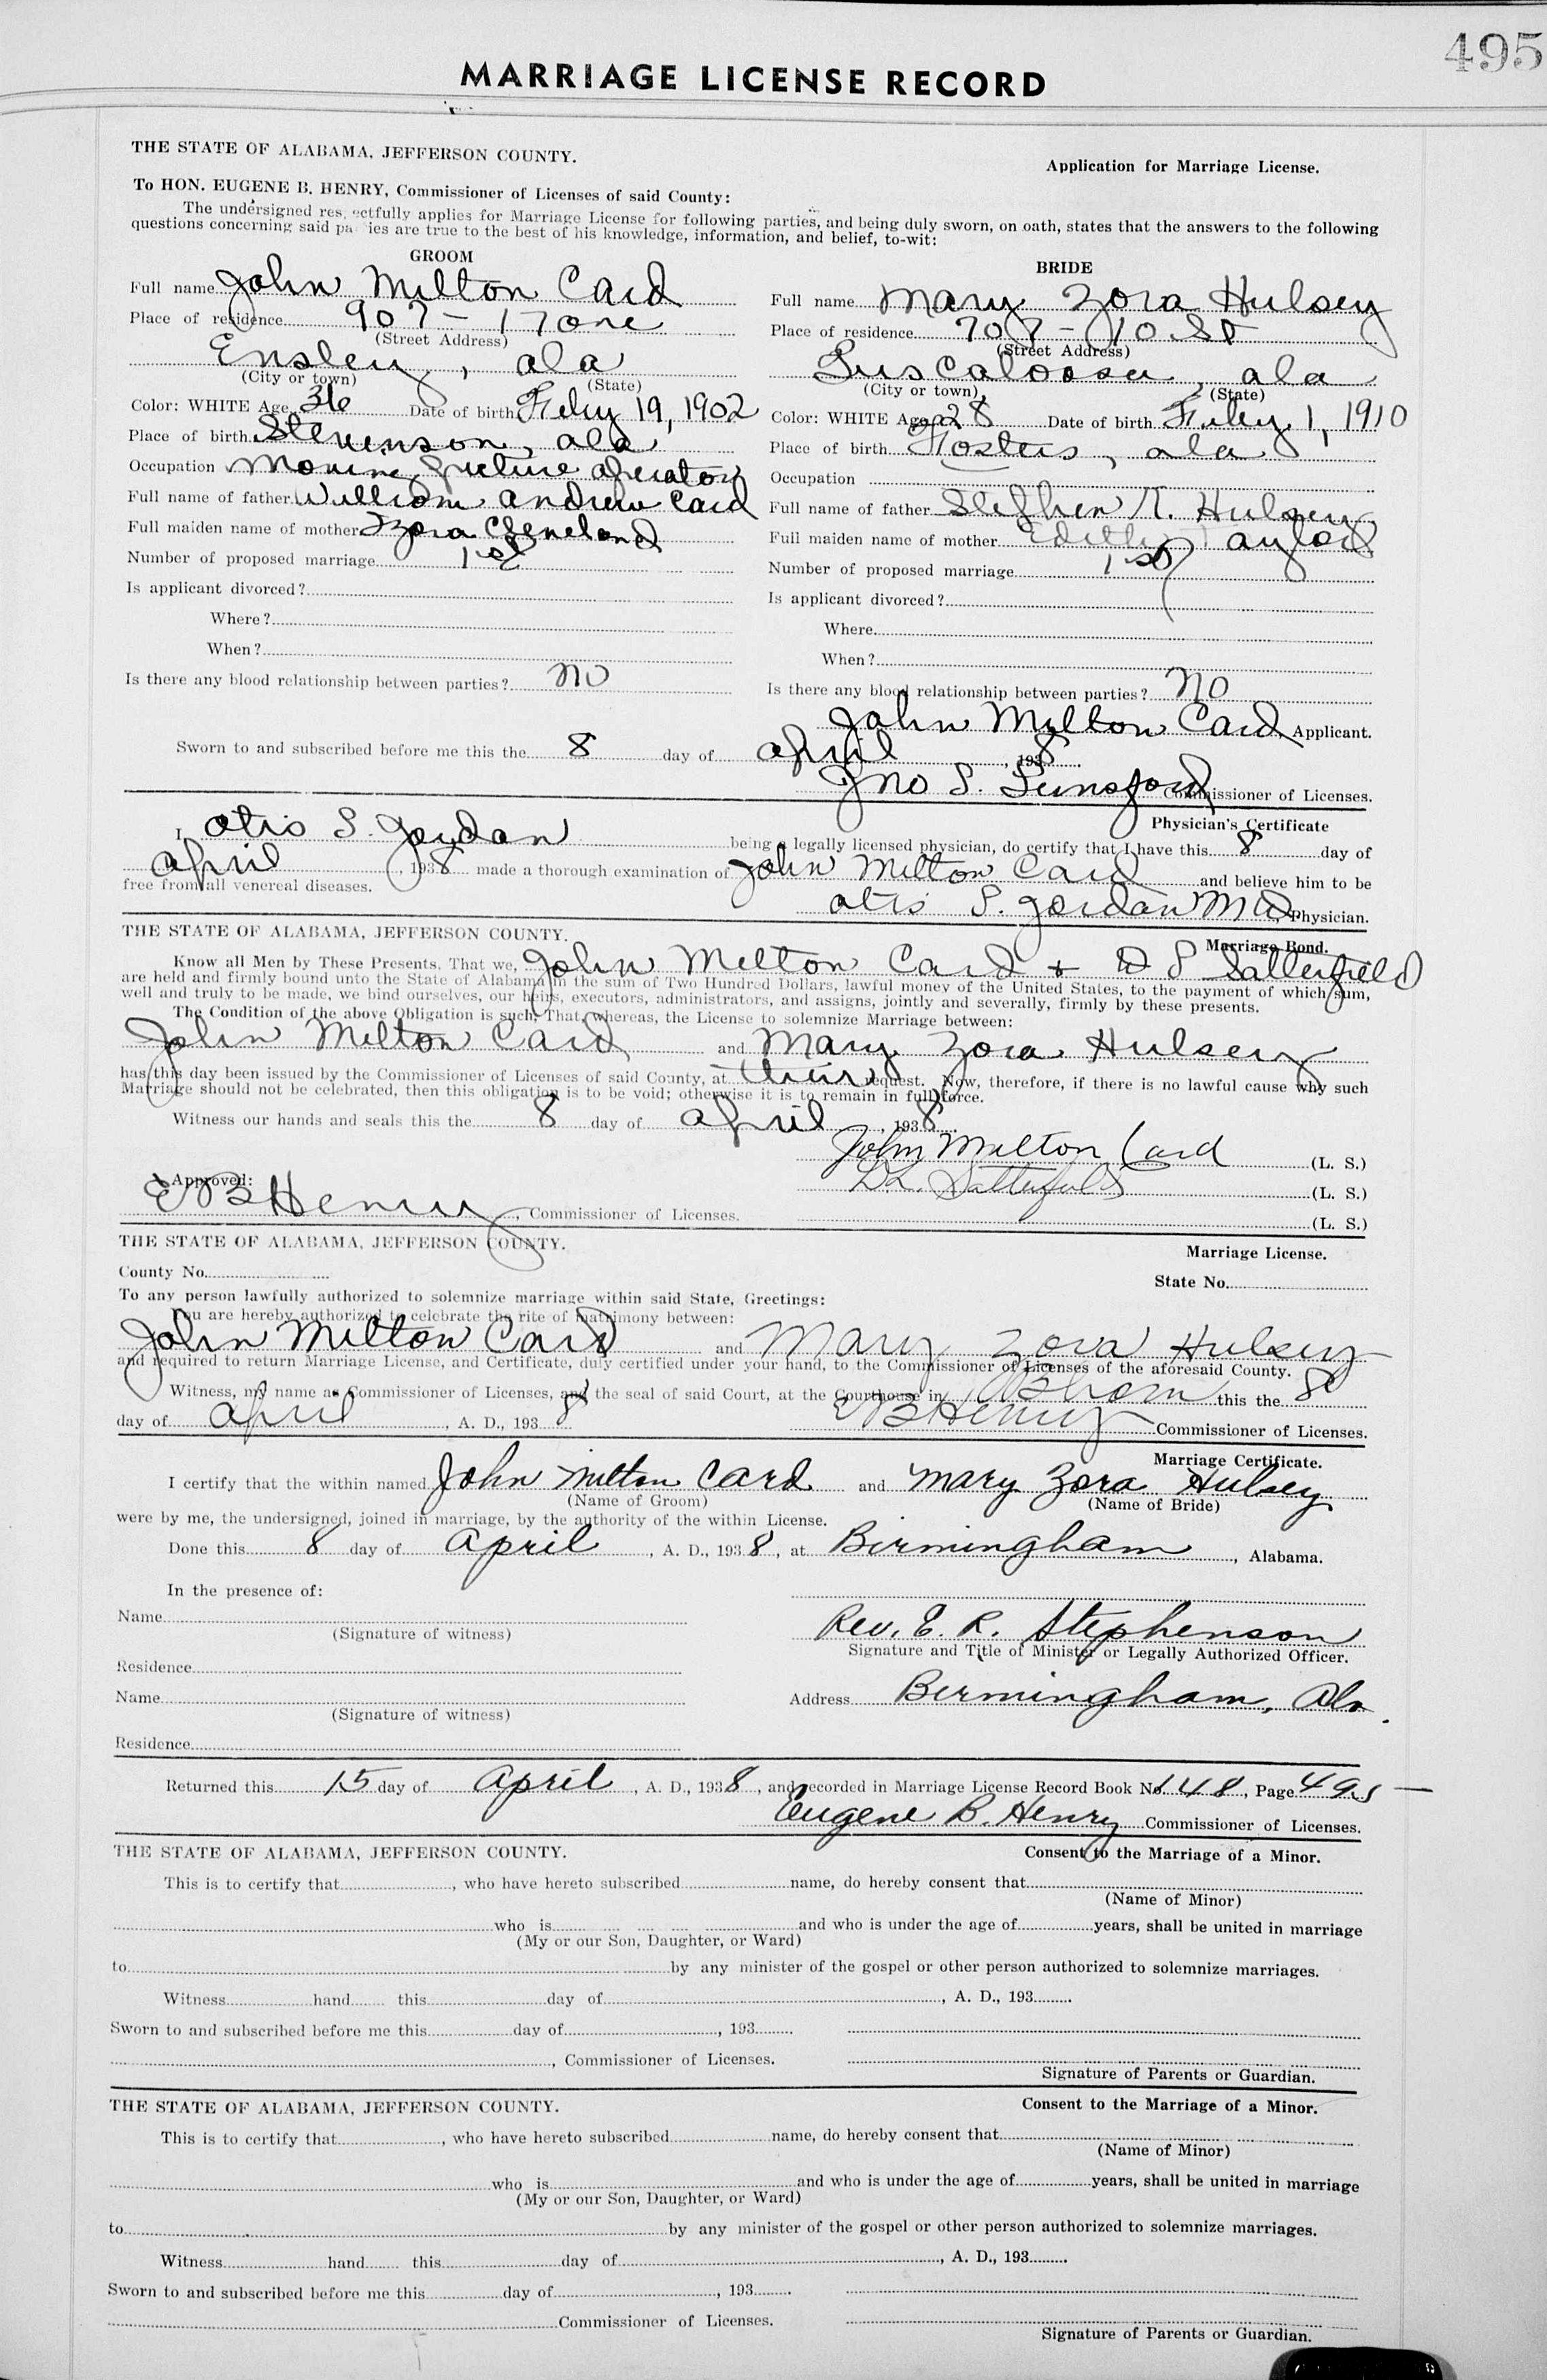 495
MARRIAGE LICENSE RECORD
THE STATE OF ALABAMA, JEFFERSON COUNTY.
Application for Marriage License.
To HON. EUGENE B. HENRY, Commissioner of Licenses of said County:
The undersigned res. ectfully applies for Marriage License for following parties, and being duly sworn, on oath, states that the answers to the following
questions concerning said pa ies are true to the best of his knowledge, information, and belief, to-wit:
GROOM
Full name John Milton Card
Place of residence 907 - 17
(Street Address)
Ensley, ala
(City or town) (State)
Color: WHITE Age 36 Date of birth Feby 19, 1902
Place of birth Stevenson, ala
Occupation Moving Picture Operator
Full name of father William Andrew Card
Full maiden name of mother Zora Cleveland
Number of proposed marriage 1st
Is applicant divorced?
Where?
When?
Is there any blood relationship between parties? No
BRIDE
Full name Mary Zora Hulsey
Place of residence 707 - 10 St
(Street Address)
Tuscaloosa, ala
(City or town) (State)
Color: WHITE Age 28 Date of birth Feby 1, 1910
Place of birth Fosters, ala
Occupation
Full name of father Stephen T. Hulsey
Full maiden name of mother Edith Taylor
Number of proposed marriage 1st
Is applicant divorced?
Where
When?
Is there any blood relationship between parties? No
John Milton Card Applicant.
Sworn to and subscribed before me this the 8 day of April, 1938.
Jno S. Lunsford Commissioner of Licenses.
Physician's Certificate
I, Otis S. Jordan being a legally licensed physician, do certify that I have this 8 day of
April, 1938 made a thorough examination of John Milton Card and believe him to be
free from all venereal diseases.
Otis S. Jordan MD, Physician.
THE STATE OF ALABAMA, JEFFERSON COUNTY.
Marriage Bond.
Know all Men by These Presents, That we, John Milton Card + D S Satterfield
are held and firmly bound unto the State of Alabama in the sum of Two Hundred Dollars, lawful money of the United States, to the payment of which sum,
well and truly to be made, we bind ourselves, our heirs, executors, administrators, and assigns, jointly and severally, firmly by these presents.
The Condition of the above Obligation is such, That, whereas, the License to solemnize Marriage between:
John Milton Card and Mary Zora Hulsey
has this day been issued by the Commissioner of Licenses of said County, at their request. Now, therefore, if there is no lawful cause why such
Marriage should not be celebrated, then this obligation is to be void; otherwise it is to remain in full force.
Witness our hands and seals this the 8 day of April, 1938.
John Milton Card (L. S.)
D.L. Satterfield (L. S.)
Approved:
E B Henry, Commissioner of Licenses.
(L. S.)
THE STATE OF ALABAMA, JEFFERSON COUNTY.
Marriage License.
County No.
State No.
To any person lawfully authorized to solemnize marriage within said State, Greetings:
You are hereby authorized to celebrate the rite of matrimony between:
John Milton Card and Mary Zora Hulsey
and required to return Marriage License, and Certificate, duly certified under your hand, to the Commissioner of Licenses of the aforesaid County.
Witness, my name as Commissioner of Licenses, and the seal of said Court, at the Courthouse in Bham this the 8
day of April, A. D., 1938 E B Henry Commissioner of Licenses.
Marriage Certificate.
I certify that the within named John Milton Card and Mary Zora Hulsey
(Name of Groom) (Name of Bride)
were by me, the undersigned, joined in marriage, by the authority of the within License.
Done this 8 day of April, A. D., 1938, at Birmingham, Alabama.
In the presence of:
Name
(Signature of witness)
Rev. E. R. Stephenson
Signature and Title of Minister or Legally Authorized Officer.
Residence
Name
(Signature of witness)
Address Birmingham, Ala.
Residence
Returned this 15 day of April, A. D., 1938, and recorded in Marriage License Record Book No. 148, Page 495
Eugene B. Henry Commissioner of Licenses.
THE STATE OF ALABAMA, JEFFERSON COUNTY.
Consent to the Marriage of a Minor.
This is to certify that , who have hereto subscribed name, do hereby consent that
(Name of Minor)
who is and who is under the age of years, shall be united in marriage
(My or our Son, Daughter, or Ward)
to by any minister of the gospel or other person authorized to solemnize marriages.
Witness hand this day of , A. D., 193
Sworn to and subscribed before me this day of , 193
, Commissioner of Licenses.
Signature of Parents or Guardian.
THE STATE OF ALABAMA, JEFFERSON COUNTY.
Consent to the Marriage of a Minor.
This is to certify that , who have hereto subscribed name, do hereby consent that
(Name of Minor)
who is and who is under the age of years, shall be united in marriage
(My or our Son, Daughter, or Ward)
to by any minister of the gospel or other person authorized to solemnize marriages.
Witness hand this day of , A. D., 193
Sworn to and subscribed before me this day of , 193
Commissioner of Licenses.
Signature of Parents or Guardian.